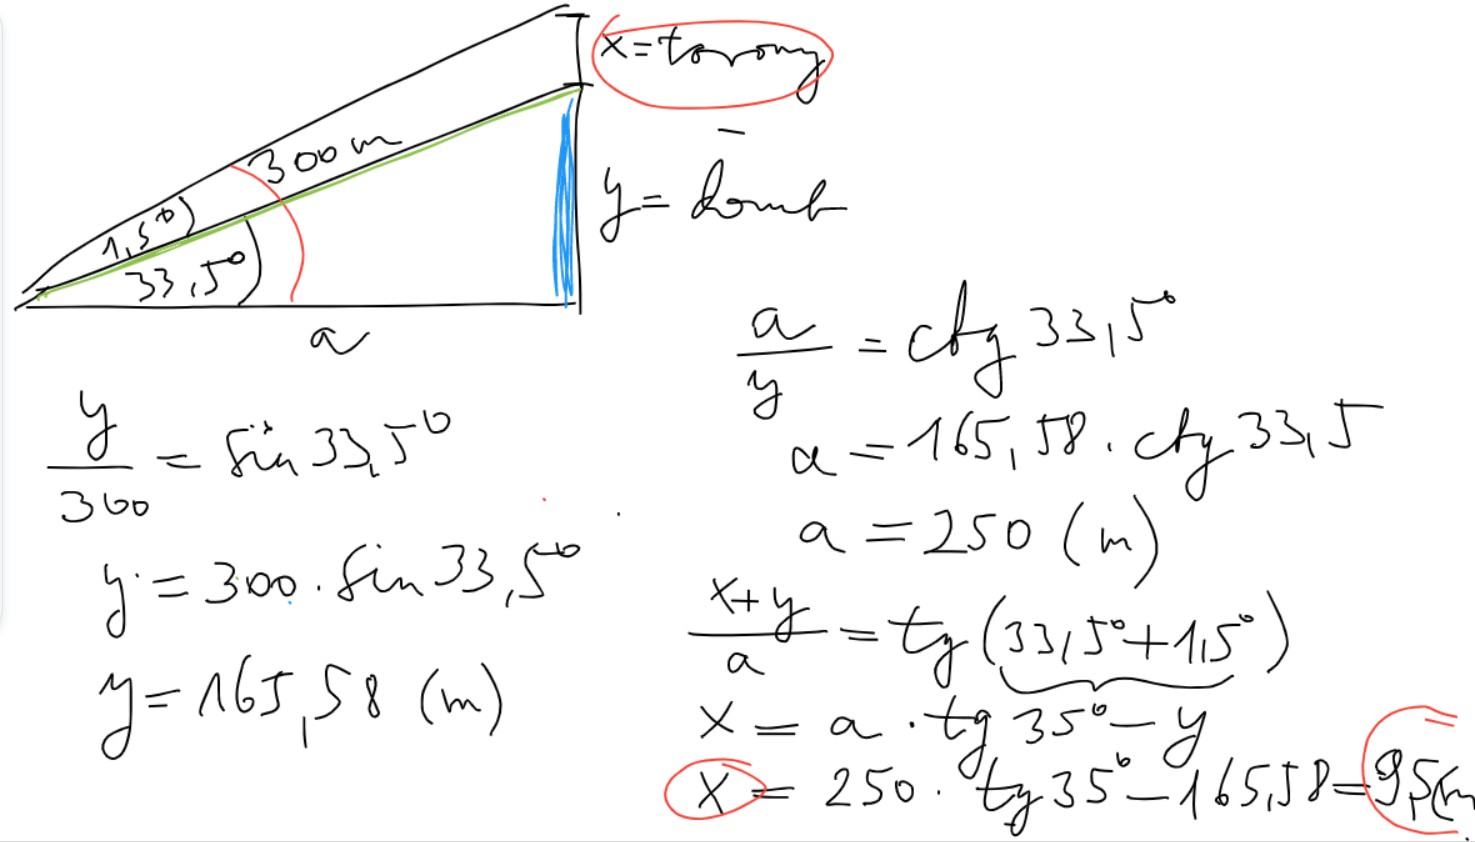 x = torony
300 m
y = domb
1,5°
33,5°
a
y/300 = sin 33,5°
y = 300 · sin 33,5°
y = 165,58 (m)
a/y = ctg 33,5°
a = 165,58 · ctg 33,5
a = 250 (m)
x+y/a = tg (33,5° + 1,5°)
x = a · tg 35° – y
x = 250 · tg 35° – 165,58 = 9,5 (m